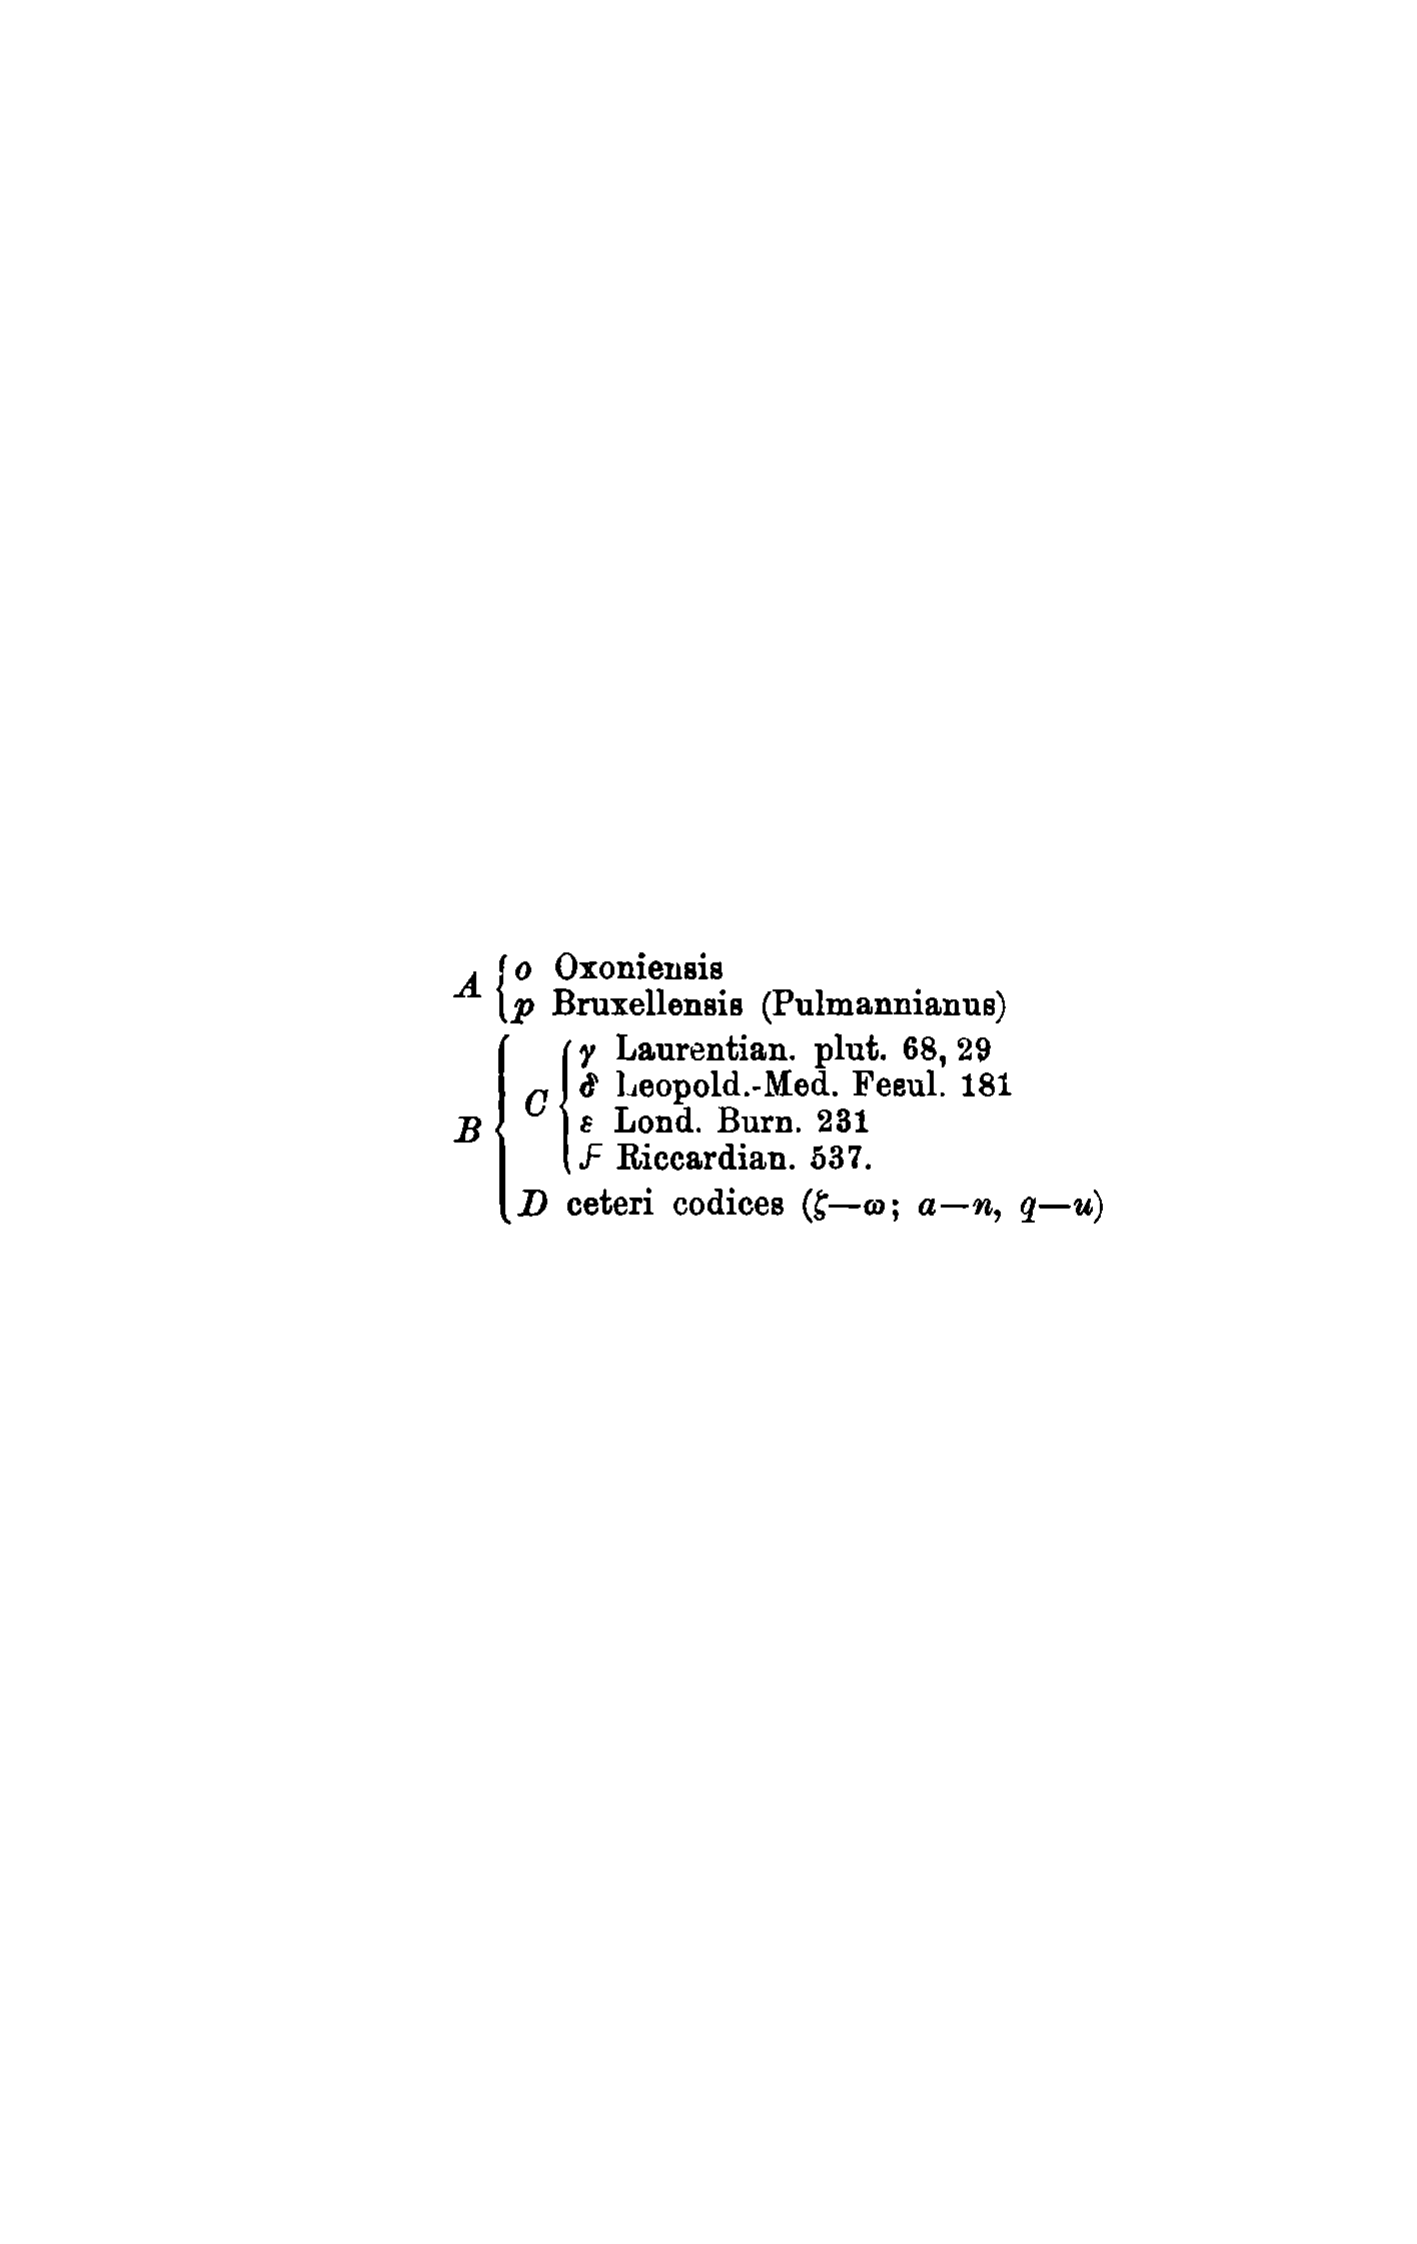 A { o Oxoniensis
p Bruxellensis (Pulmannianus)
B { C { γ Laurentian. plut. 68, 29
δ Leopold.-Med. Fesul. 181
ε Lond. Burn. 231
Ϝ Riccardian. 537.
D ceteri codices (ζ—ω; a—n, q—u)